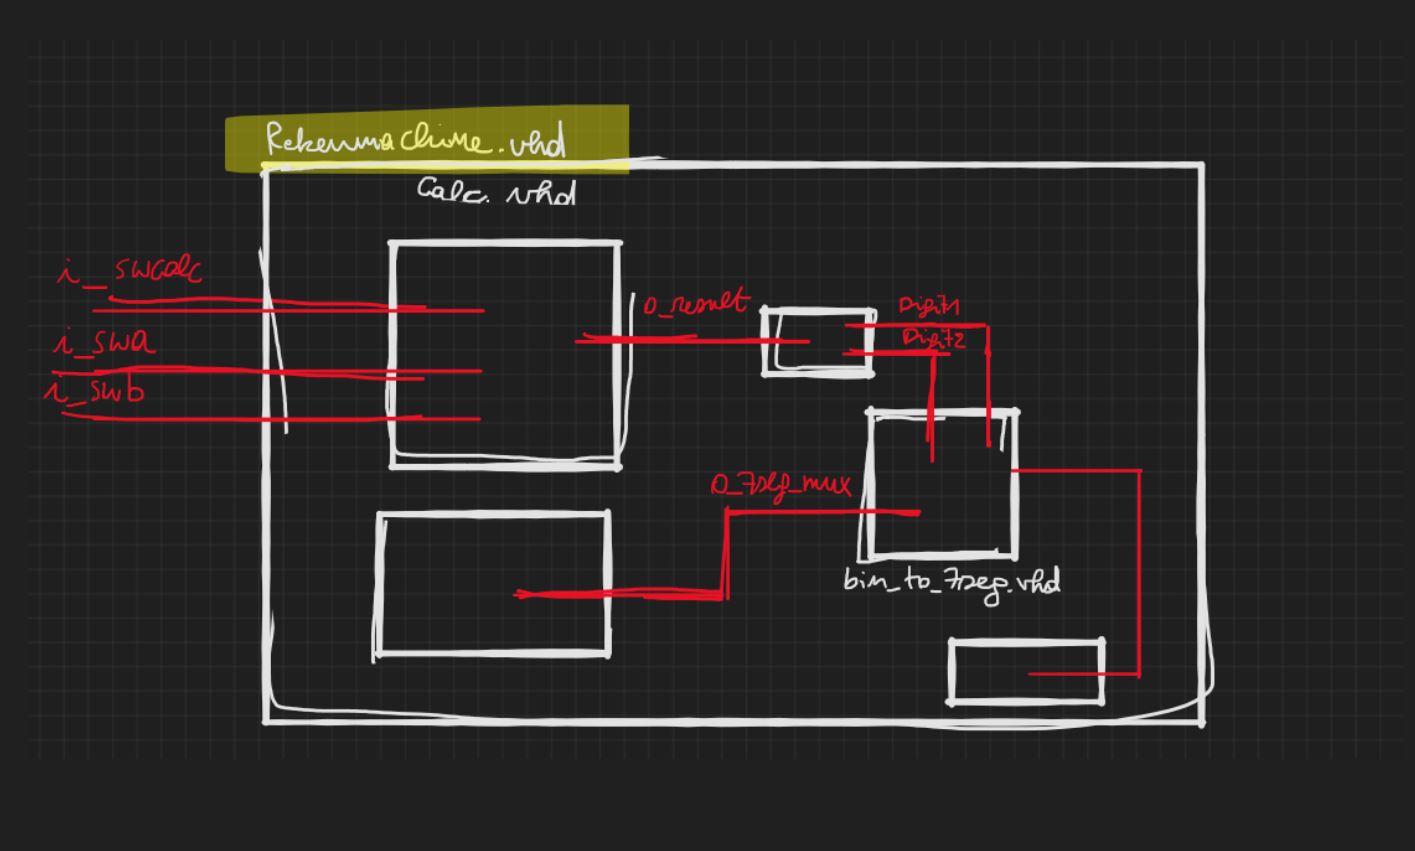 Rekenmachine.vhd
Calc.vhd
i_swcalc
i_swa
i_swb
o_result
Digit1
Digit2
o_7seg_mux
bin_to_7seg.vhd